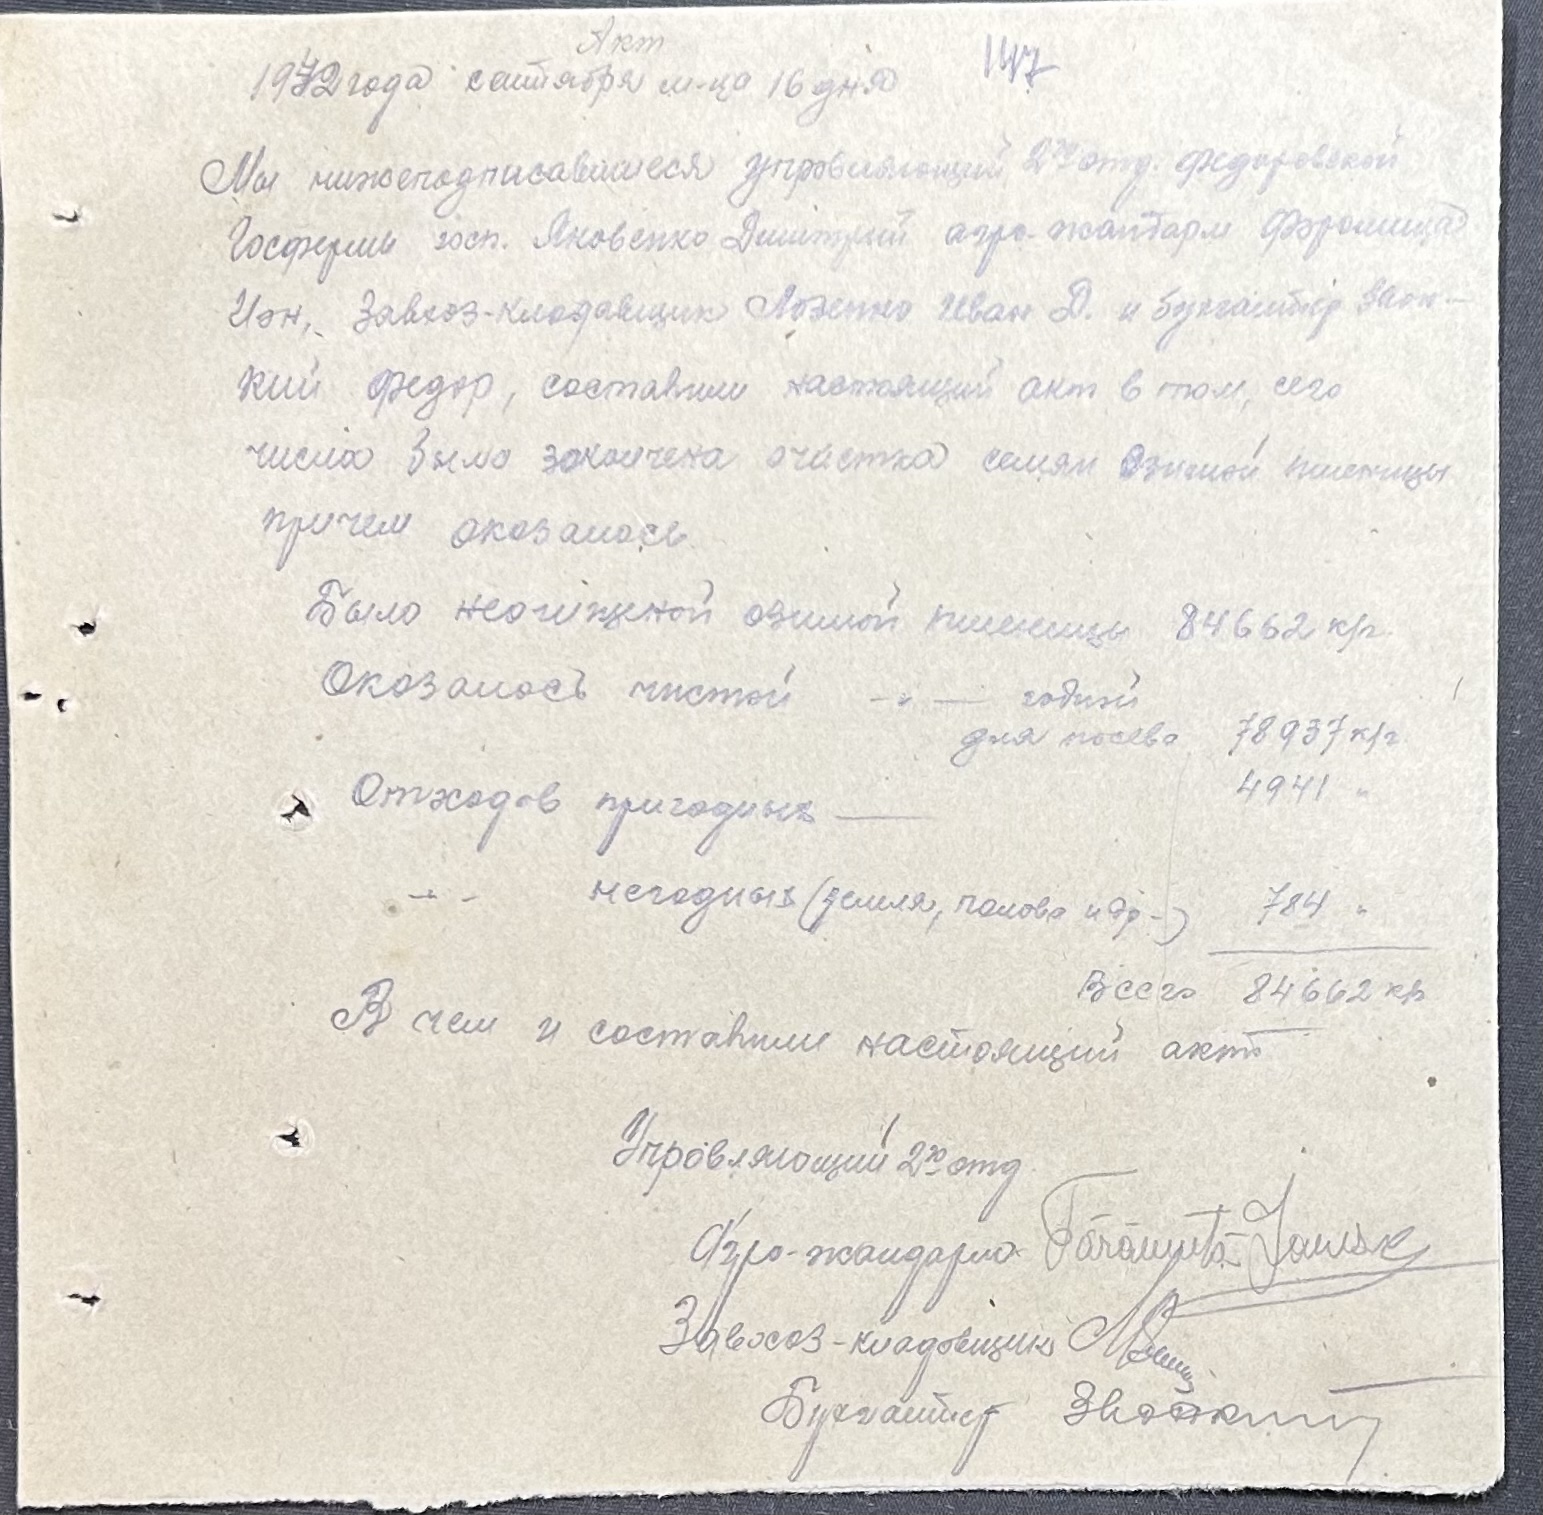 Акт
147
1942 года сентября м-ца 16 дня
Мы нижеподписавшиеся управляющий 2го отд. Федоровской
Госфермы госп. Яковенко Дмитрий агро-жандарм Фэромица
Иэн, Завхоз-кладавщик Лозенко Иван Д. и бухгалтер Звон-
кий Федор, составили настоящий акт в том, сего
числа было закончена очистка семян озимой пшеницы
причем оказалось
Было неочищеной озимой пшеницы 84662 кгр.
Оказалось чистой -"- годной
для посева 78937 кгр
Отходов пригодных — 4941 "
-"- негодных (земля, полова и др-) 784 "
Всего 84662 кгр
В чем и составили настоящий акт
Управляющий 2го отд.
Агро-жандарм
Завхоз-кладовщик
Бухгалтер Звонкий